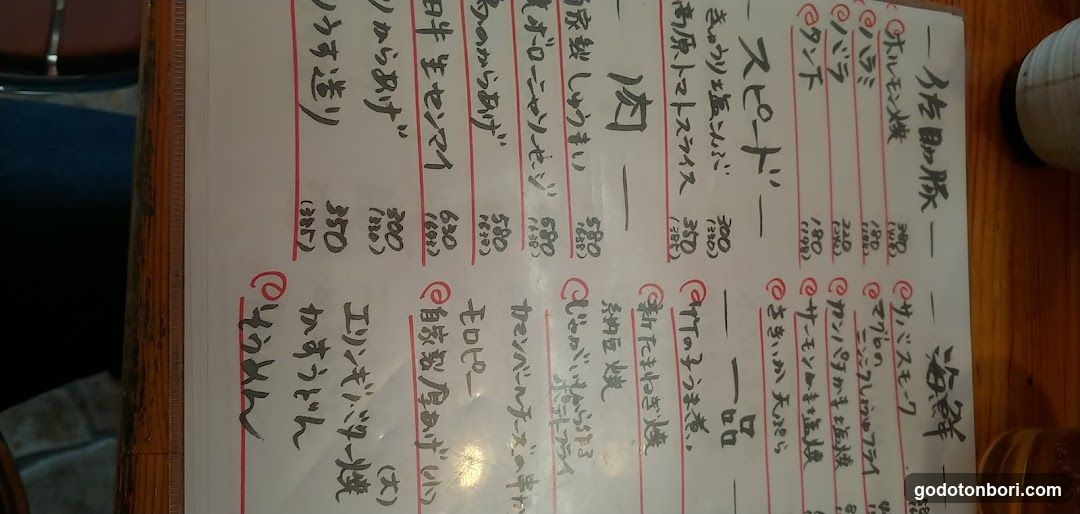 一佐助豚一
ホルモン焼 380
ハラミ 180
バラ 220
タン下 180 (198)
一スピード一
きゅうり塩こんぶ 300 (330)
高原トマトスライス 350 (385)
一肉一
家製しゅうまい 580 (638)
ボローニャソーセージ 580 (638)
鳥のからあげ 580 (638)
牛生センマイ 630 (693)
からあげ 300 (330)
うす造り 350 (385)
一海鮮一
サバスモーク
マグロの
ニンニクしょうゆフライ
カンパチかま塩焼
サーモンかま塩焼
さきいか天ぷら
一一品一
竹の子うま煮
新たまねぎ焼
納豆焼
じゃがいもから作る
ポテトフライ
カマンベールチーズの串か
モロピー
自家製厚あげ(小)
(大)
エリンギバター焼
かすうどん
そうめん
godotonbori.com